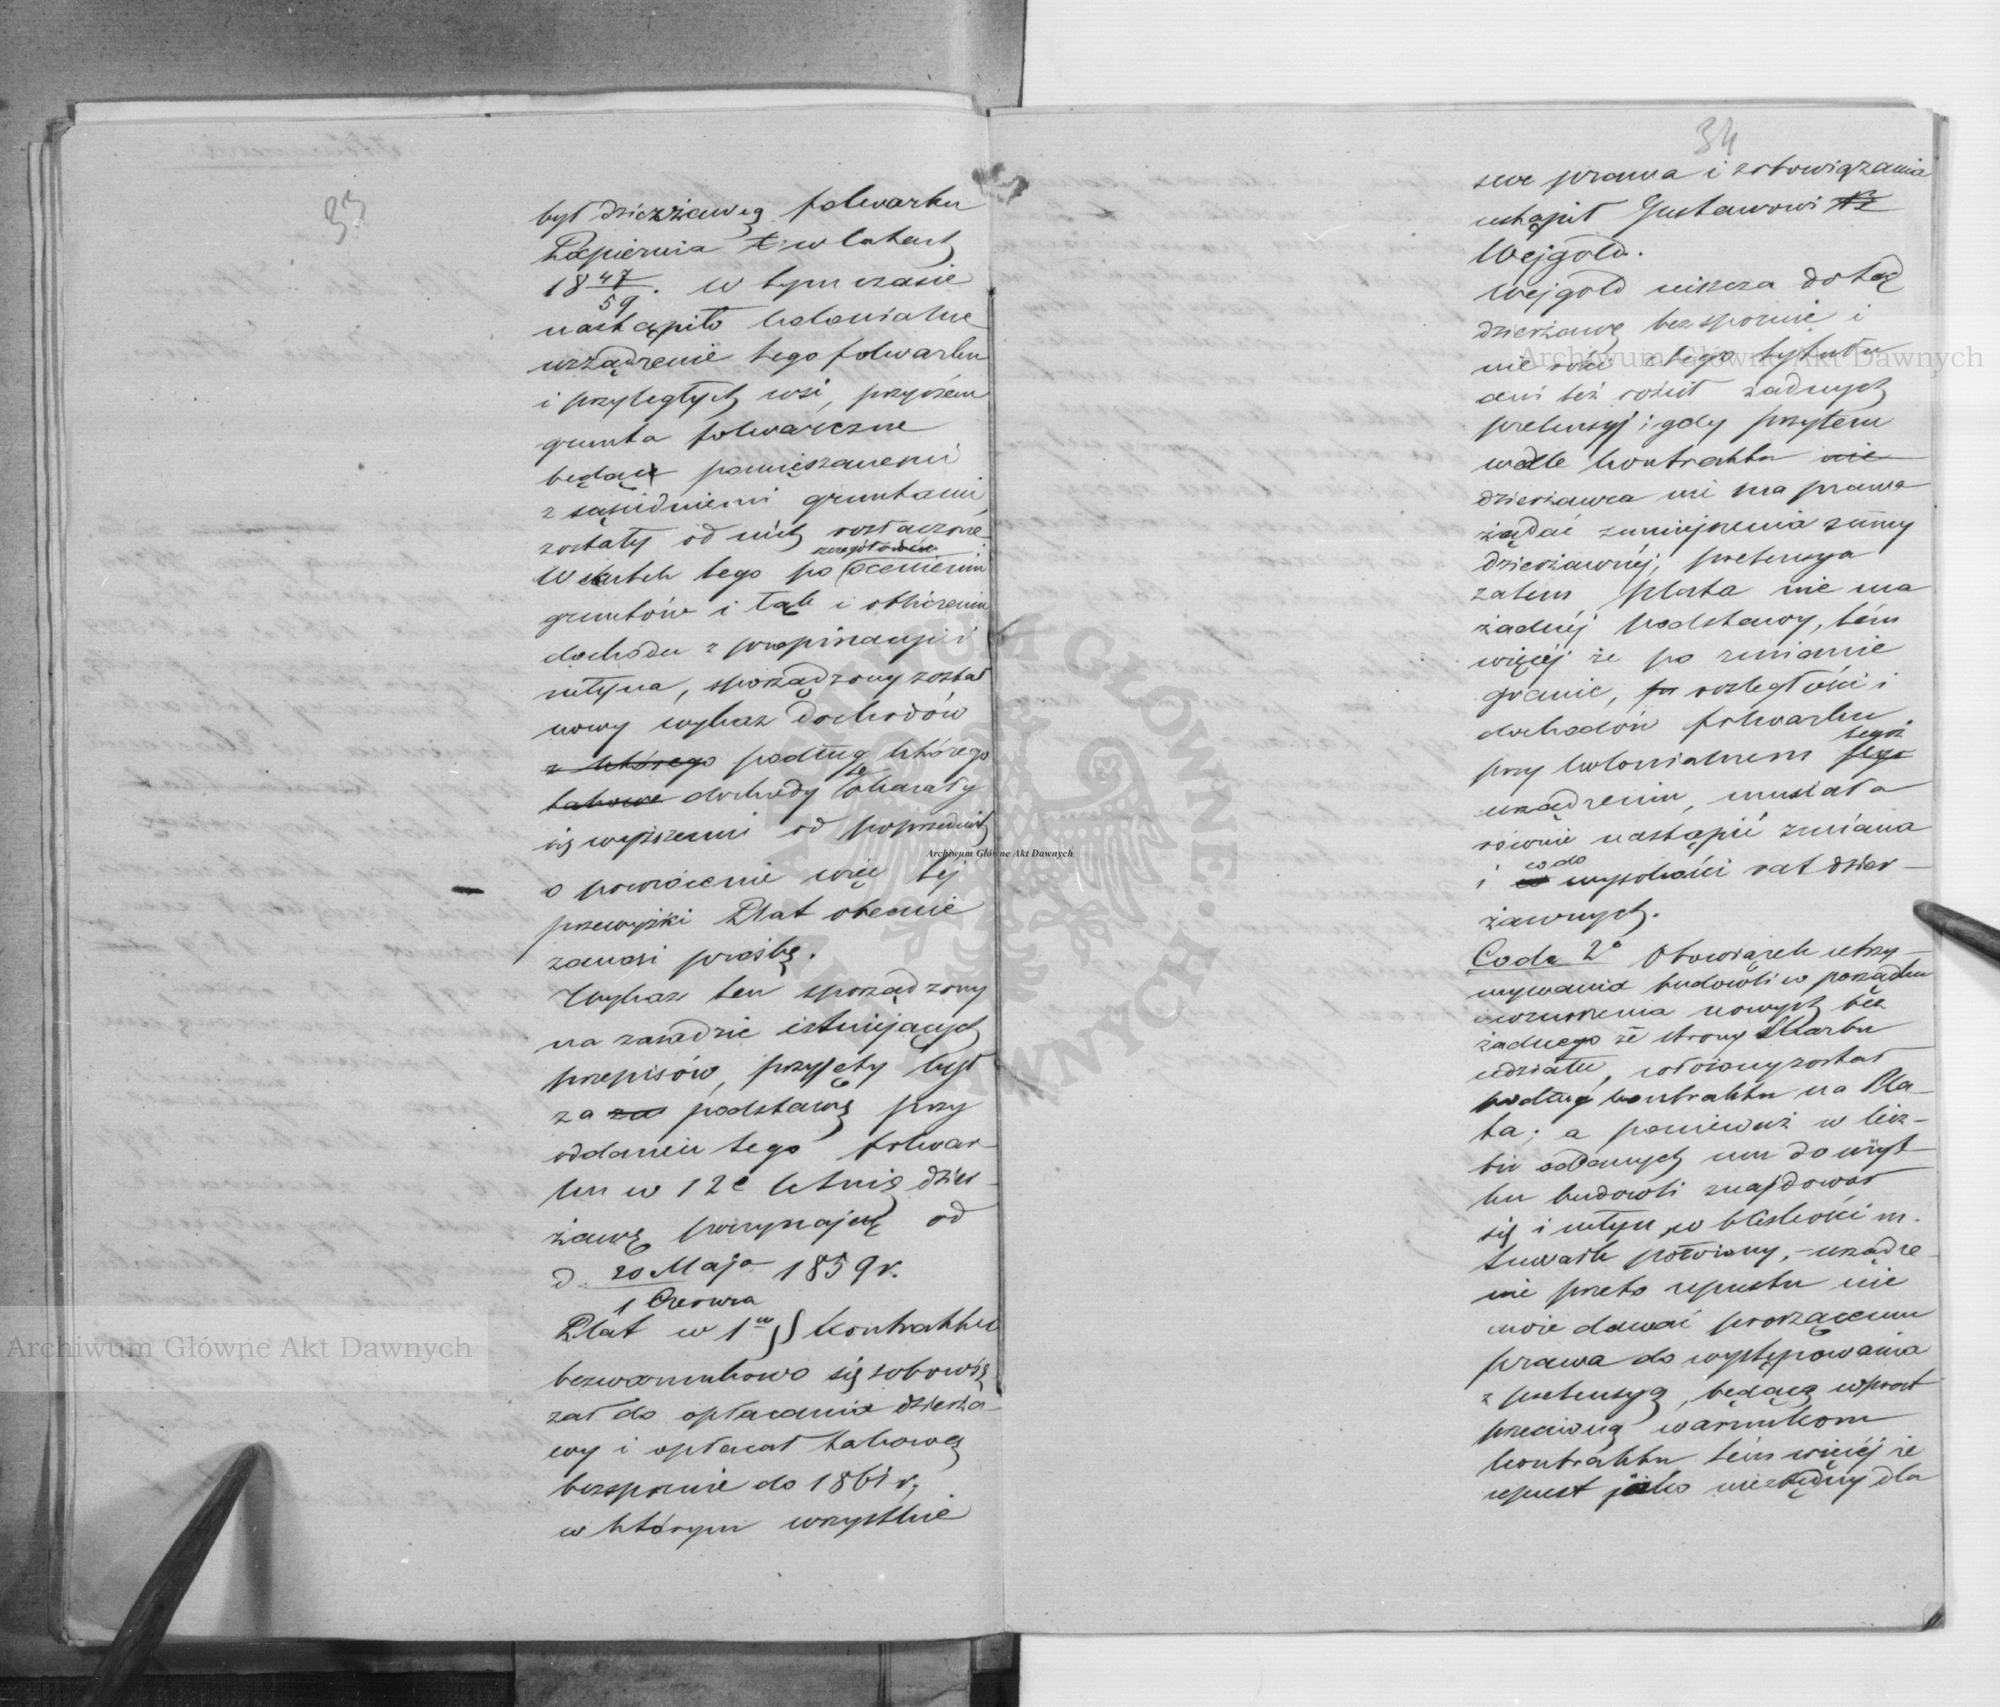 33
był dzierżawcą folwarku
Papiernia w latach
18 47/59. w tym czasie
nastąpiło kolonialne
urządzenie tego folwarku
i przyległych wsi, przyczem
grunta folwarczne
będąc pomięszanemi
z sąsiedniemi gruntami,
zostały od nich rozłączone.
szczegółowém
W skutek tego po ocenieniu
gruntów i łąk i obliczeniu
dochodu z propinacyi i
młyna, sporządzony został
nowy wykaz dochodów
z którego podług którego
takowe dochody te okazały
się wyższemi od poprzednich
o powrócenie więc tej
przewyżki Plat obecnie
zanosi prośbę.
Wykaz ten sporządzony
na zasadzie istniejących
przepisów, przyjęty był
za za podstawę przy
oddaniu tego folwar-
ku w 12e letnią dzier-
żawę poczynającą od
d. 20 Maja / 1 Czerwca 1859 r.
Plat w 1m § Kontraktu
bezwarunkowo się zobowią
zał do opłacania dzierża-
wy i opłacał takową
bezspornie do 1861 r.
w którym wszystkie
34
swe prawa i zobowiązania
ustąpił Gustawowi
Wejgold.
Wejgold uiszcza dotąd
dzierżawę bezspornie i
nie rości z tego tytułu
ani też rościł żadnych
pretensyj i gdy przytem
wedle kontraktu nie
dzierżawca nie ma prawa
żądać zmniejszenia summy
dzierżawnéj, pretensya
zatem Plata nie ma
żadnéj podstawy, tém
więcéj że po zmianie
granic, rozległości i
dochodów folwarku
przy kolonialnem tegoż
urządzeniu, musiała
równie nastąpić zmiana
i co do wysokości rat dzier-
żawnych.
Co do 2o Obowiązek utrzy-
mywania budowli w porządku
i wznoszenia nowych bez
żadnego ze strony Skarbu
udziału, włożony został
podług kontraktu na Pla-
ta; a ponieważ w licz-
bie oddanych mu do użyt-
ku budowli znajdował
się i młyn w bliskości m.
Suwałk położony, – urządze-
nie przeto upustu nie
może dawać proszącemu
prawa do występowania
z pretensyą, będącą wprost
przeciwną warunkom
kontraktu tém więcéj że
upust jako niezbędny dla
Archiwum Główne Akt Dawnych
Archiwum Główne Akt Dawnych
Archiwum Główne Akt Dawnych
ARCHIWUM GŁÓWNE AKT DAWNYCH